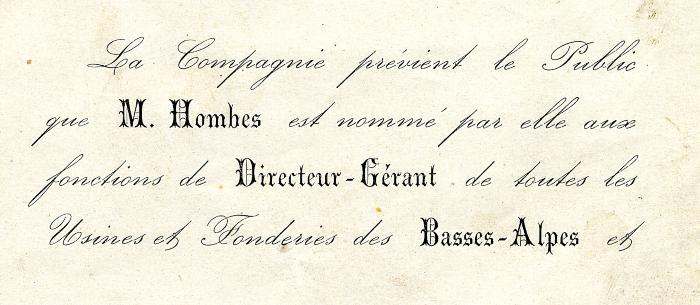 La Compagnie prévient le Public
que M. Hombes est nommé par elle aux
fonctions de Directeur-Gérant de toutes les
Usines et Fonderies des Basses-Alpes et